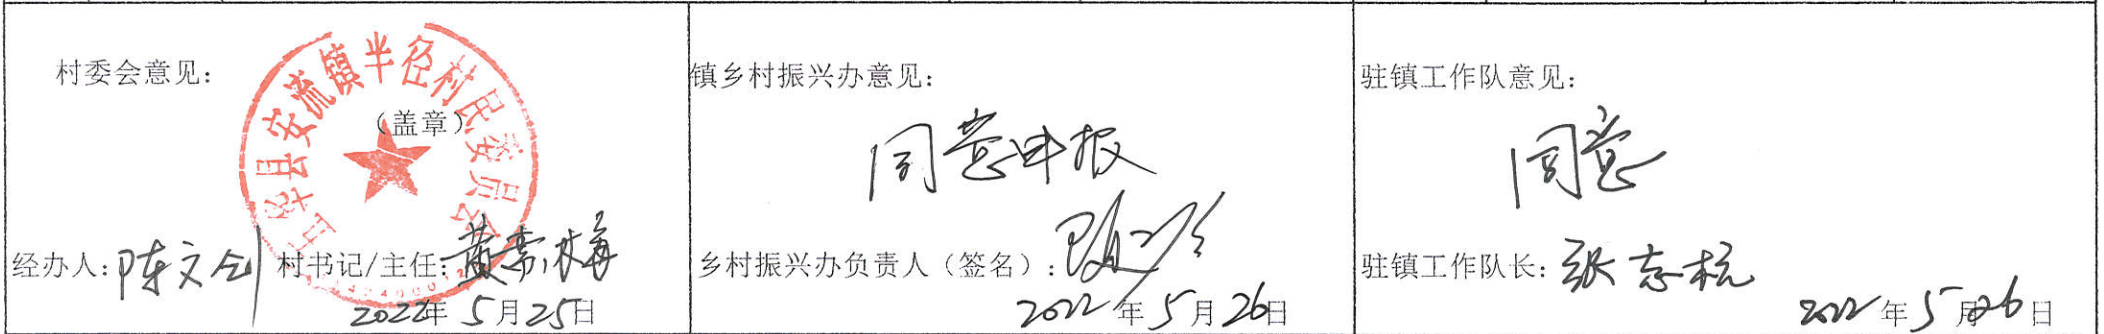 村委会意见：
五华县安流镇半径村民委员会
（盖章）
经办人：陈文剑 村书记/主任：黄崇梅
2022年5月25日
镇乡村振兴办意见：
同意申报
乡村振兴办负责人（签名）：
2022年5月26日
驻镇工作队意见：
同意
驻镇工作队长：张志杭
2022年5月26日